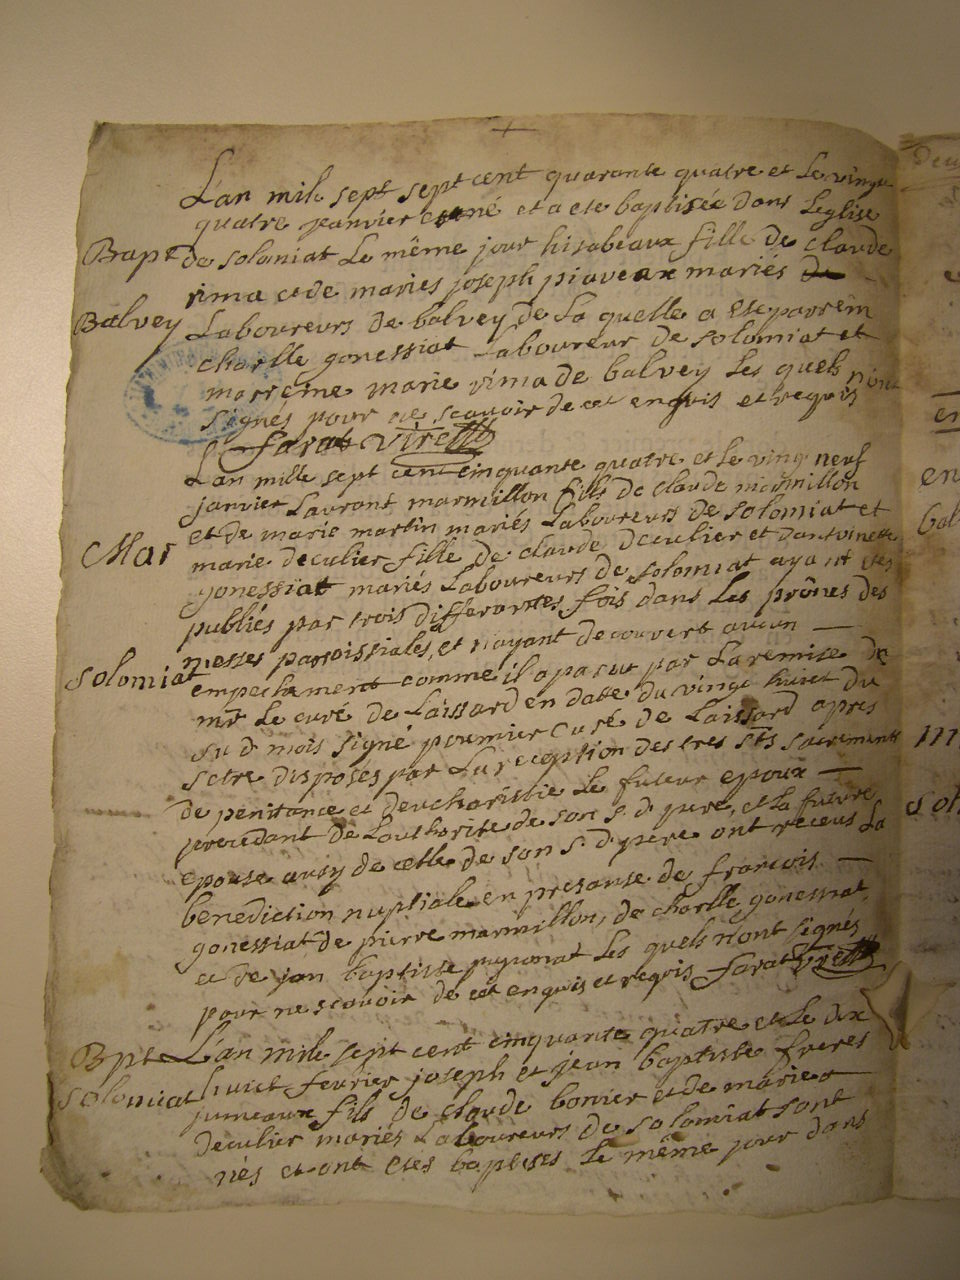 L'an mile sept sept cent quarante quatre et le vingt
quatre janvier est né et a ete baptisée dans leglise
Bapt
de soloniat le même jour hisabeaux fille de claude
vima et de maries joseph piaveaux mariés de
Balvey
Laboureurs de balvey de la quelle a ete parrein
charlle gonessiat Laboureur de solomiat et
marreine marie vima de balvey les quels n'ont
signés pour ne scavoir de cet enquis et requis
farat vire
L'an mille sept cent cinquante quatre et le ving neuf
janvier Laurant marmillon fils de claude marmillon
et de marie martin mariés Laboureurs de solomiat et
Mar
marie deculier fille de claude deculier et dantoinette
gonessiat mariés Laboureurs de solomiat ayant etes
publiés par trois differantes fois dans les prônes des
messes paroissiales, et n'ayant decouvert aucun
solomiat
empechement comme il a parut par la remise de
mr le curé de Laissard en datte du vingt huict du
su d mois signé pournier curé de Laissard apres
setre disposés par la reception des tres sts sacrements
de penitance et deucharistie le futeur epoux
procedant de Lauthorite de son s. d. pere, et la future
epouse ausy de celle de son s. d. pere ont receus la
benediction nuptiale en presanse de francois
gonessiat de pierre marmillon, de charlle gonessiat,
et de jan baptiste pugonat les quels n'ont signés
pour ne scavoir de cet enquis et requis farat vire
Bpt
L'an mile sept cent cinquante quatre et le dix
solomiat
huict fevrier joseph et jean baptiste freres
jumeaux fils de claude bonier et de marie
deculier mariés Laboureurs de solomiat sont
nés et ont etes baptises le même jour dans